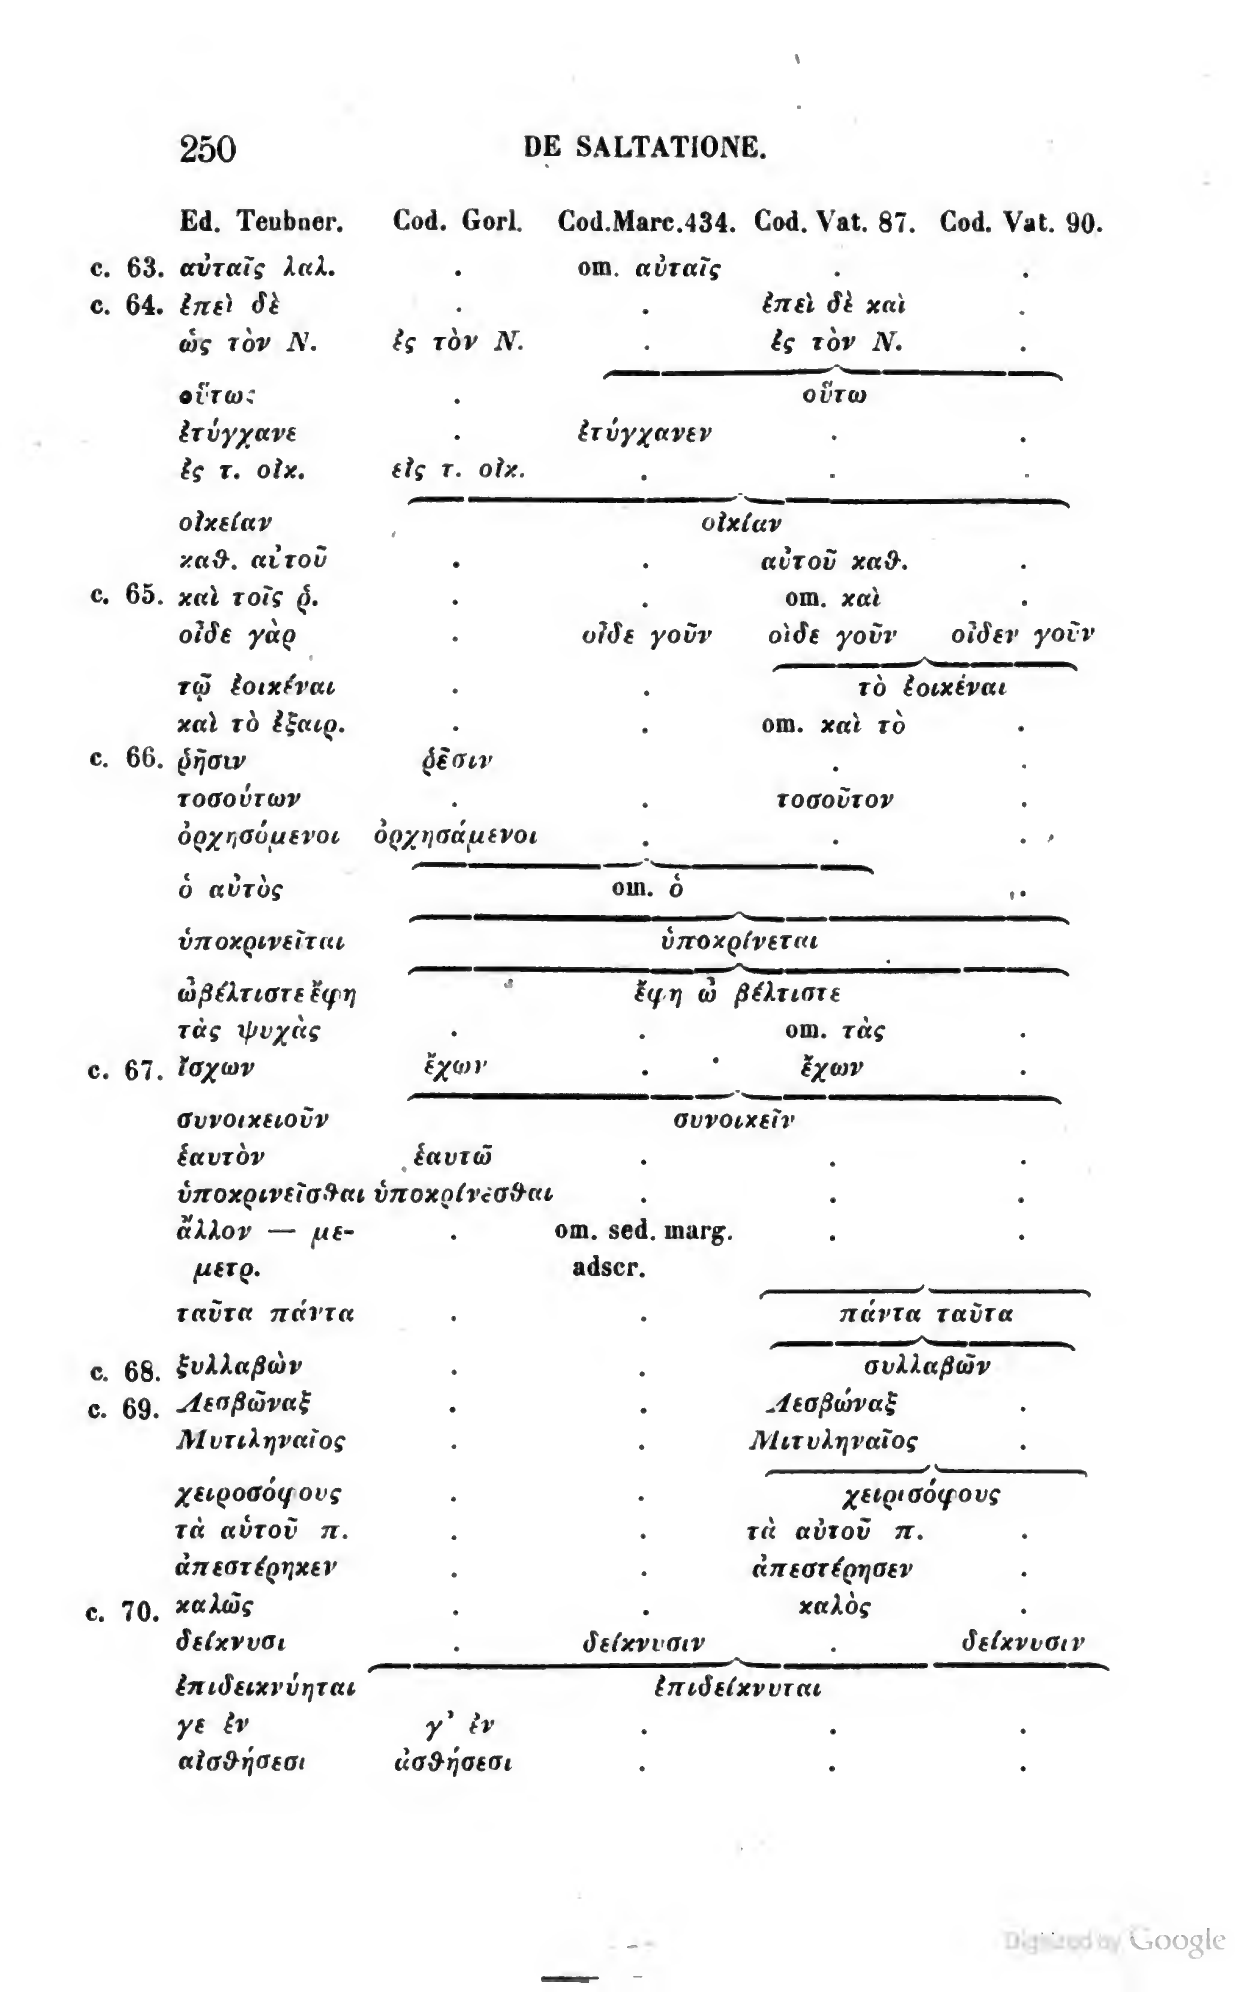 250 DE SALTATIONE.
Ed. Teubner. Cod. Gorl. Cod.Marc.434. Cod. Vat. 87. Cod. Vat. 90.
c. 63. αὐταῖς λαλ. . om. αὐταῖς . .
c. 64. ἐπεὶ δὲ . . ἐπεὶ δὲ καὶ .
ὡς τὸν Ν. ἐς τὸν Ν. . ἐς τὸν Ν. .
οὕτως . οὕτω
ἐτύγχανε . ἐτύγχανεν . .
ἐς τ. οἰκ. εἰς τ. οἰκ. . . .
οἰκείαν οἰκίαν
καθ. αὑτοῦ . . αὐτοῦ καθ. .
c. 65. καὶ τοῖς ῥ. . . om. καὶ .
οἶδε γὰρ . οἶδε γοῦν οἰδε γοῦν οἶδεν γοῦν
τῷ ἐοικέναι . . τὸ ἐοικέναι
καὶ τὸ ἐξαιρ. . . om. καὶ τὸ .
c. 66. ῥῆσιν ῥεσιν . .
τοσούτων . . τοσοῦτον .
ὀρχησόμενοι ὀρχησάμενοι . . .
ὁ αὐτὸς om. ὁ .
ὑποκρινεῖται ὑποκρίνεται
ὦβέλτιστε ἔφη ἔφη ὦ βέλτιστε
τὰς ψυχὰς . . om. τὰς .
c. 67. ἴσχων ἔχων . ἔχων .
συνοικειοῦν συνοικεῖν
ἑαυτὸν ἑαυτῶ . . .
ὑποκρινεῖσθαι ὑποκρίνεσθαι . . .
ἄλλον — με- . om. sed. marg. . .
μετρ. adscr.
ταῦτα πάντα . . πάντα ταῦτα
c. 68. ξυλλαβὼν . . συλλαβῶν
c. 69. Λεσβῶναξ . . Λεσβώναξ .
Μυτιληναῖος . . Μιτυληναῖος .
χειροσόφους . . χειρισόφους
τὰ αὑτοῦ π. . . τὰ αὐτοῦ π. .
ἀπεστέρηκεν . . ἀπεστέρησεν .
c. 70. καλῶς . . καλὸς .
δείκνυσι . δείκνυσιν . δείκνυσιν
ἐπιδεικνύηται ἐπιδείκνυται
γε ἐν γ’ ἐν . . .
αἰσθήσεσι ἀσθήσεσι . . .
Digitized by Google